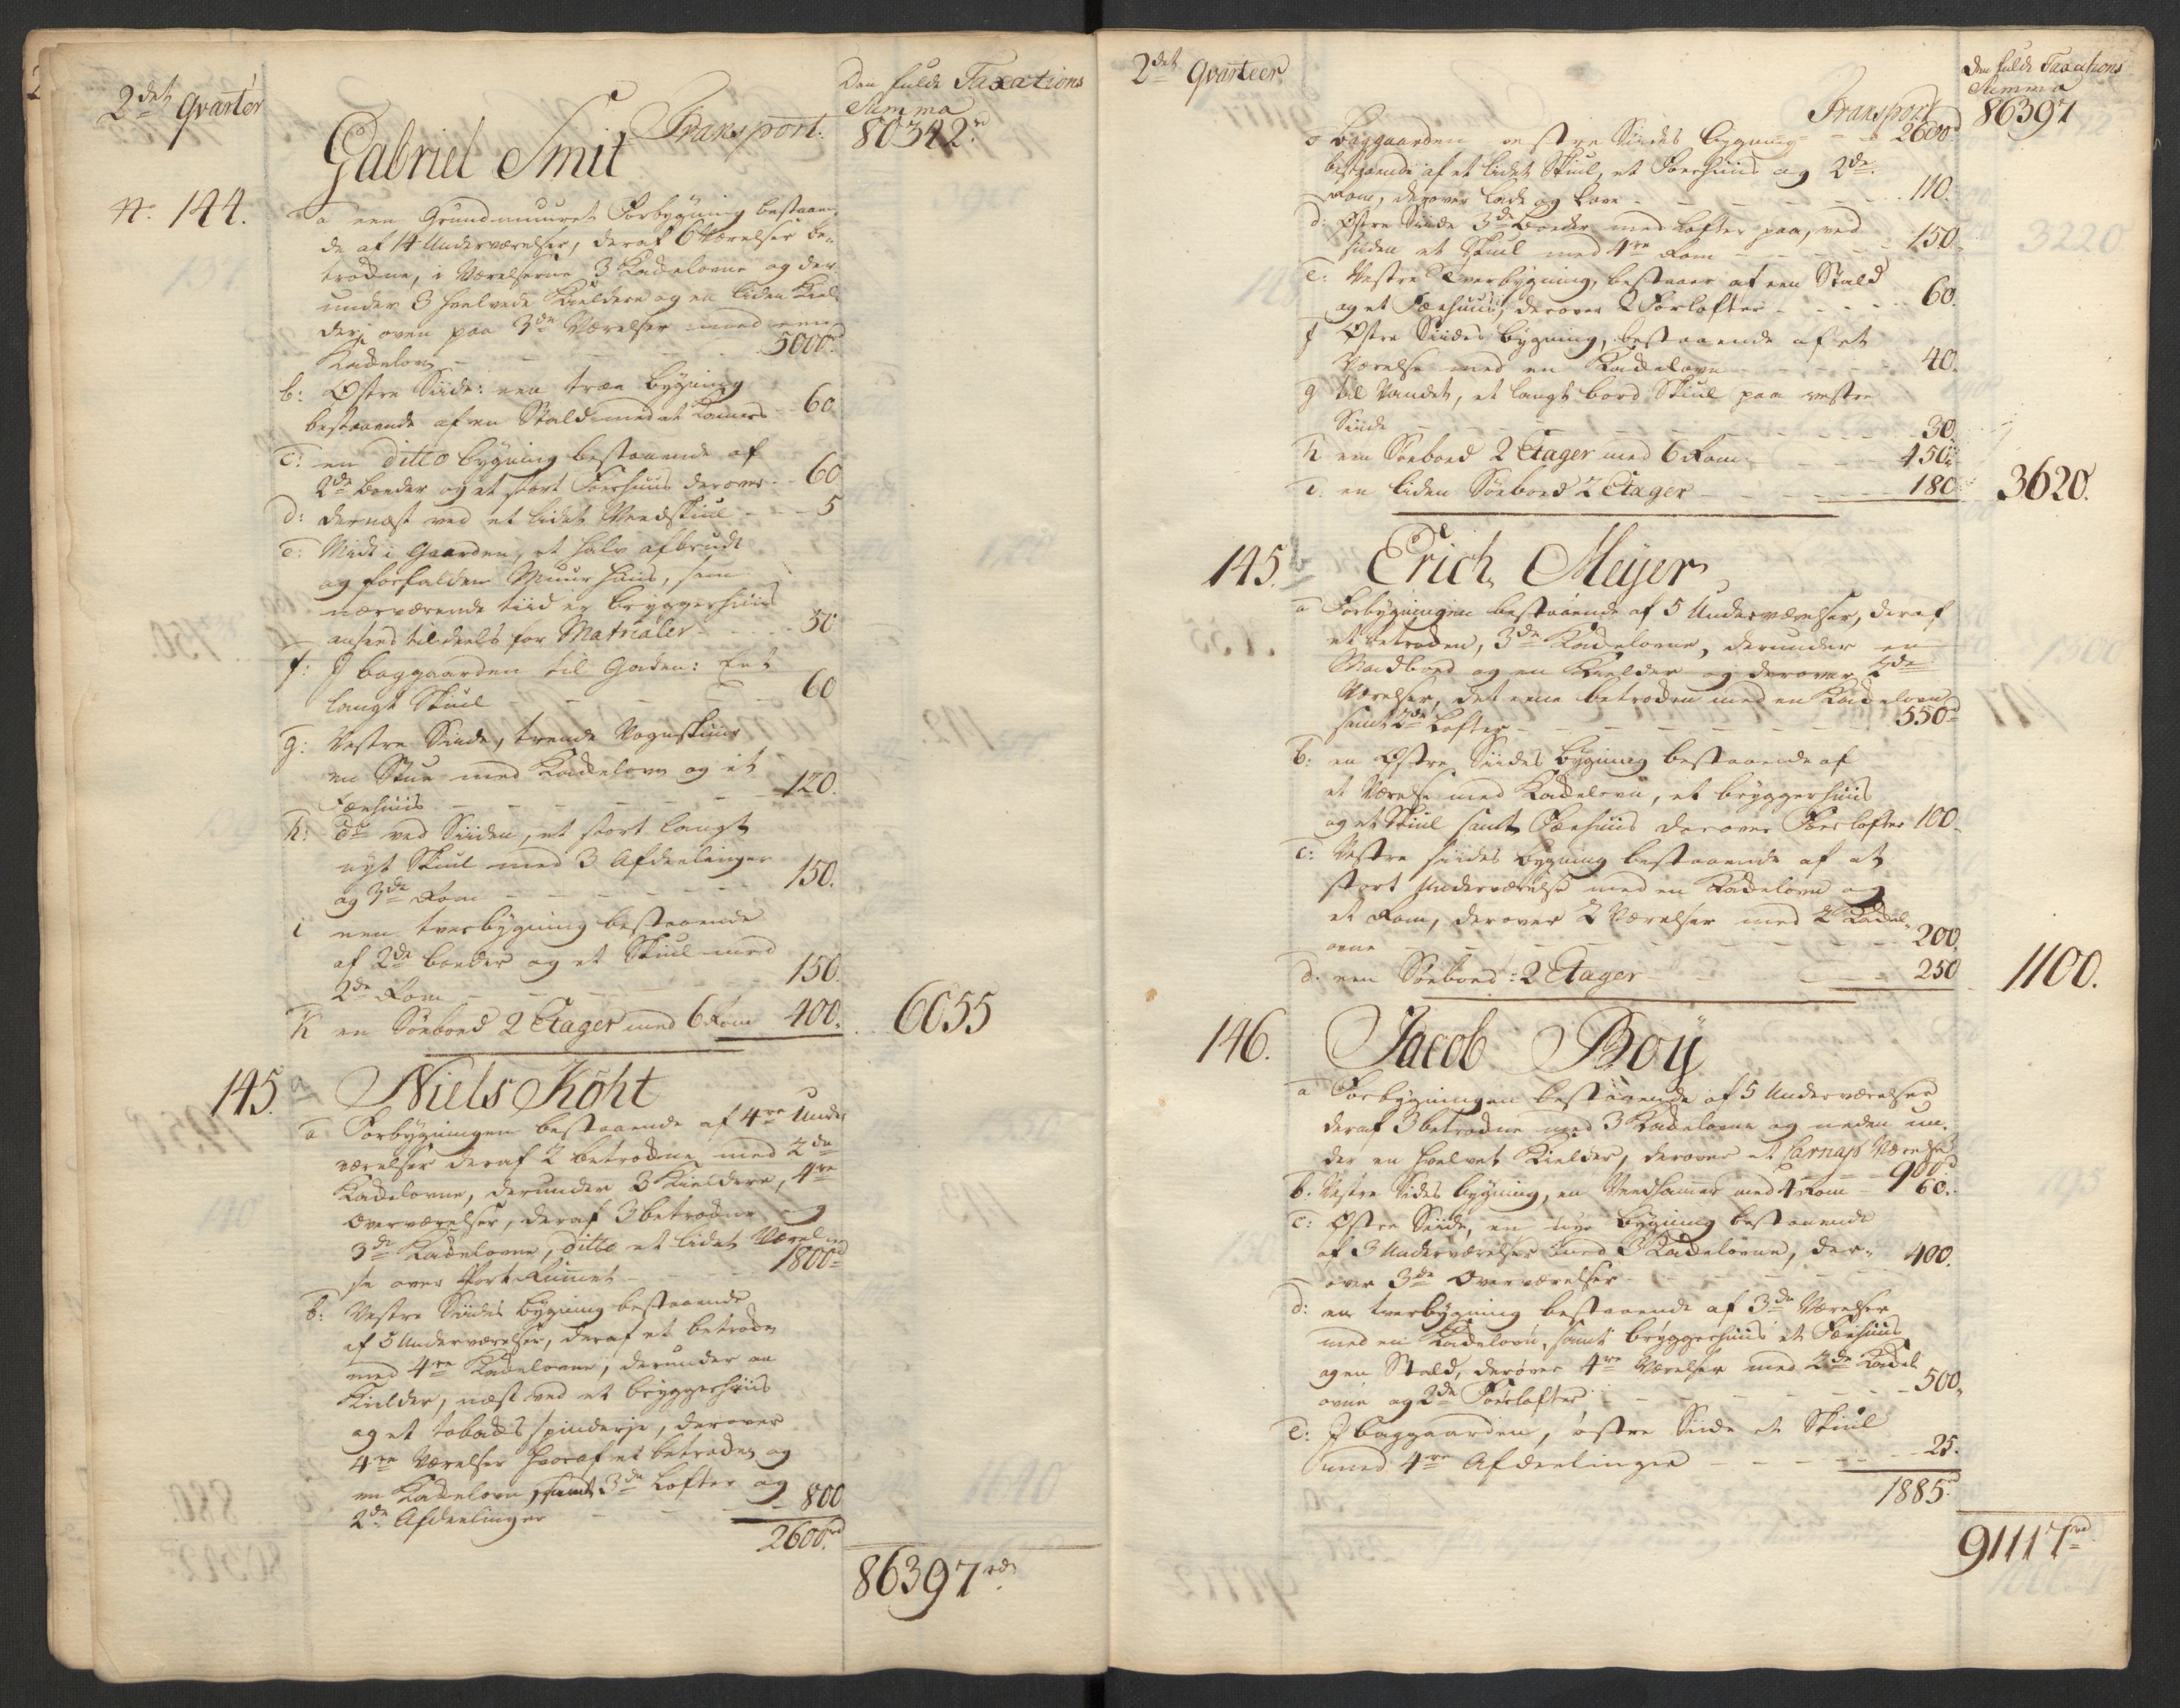 2det Qvarteer
Den fulde Taxations
Summa
Transport. 80342rd
Gabriel Smit
No 144.
a een Grundmuuret Forbygning bestaaen-
de af 14 Underværelser, deraf 6 Værelser be-
trokne, i Værelserne 3 Kackelovne og der
under 3 hvelvede Kieldere og en liden Kiel-
der, oven paa 3de Værelser med een
Kackelovn 5000rd
b: Østre Siide: een træe bygning
bestaaende af en Stald med et Kamers 60
c: en ditto bygning bestaaende af
2de boeder og et stort Foerhuus derover 60
d: dernæst ved et lidet Veedskiul 5
e: Midt i Gaarden, et halv afbrudt
og forfalden Muur huus, som
nærværende tiid er bryggerhuus
ansees til deels for Matrialer 50
f: J baggaarden til Gaden: Eet
langt Skiul 60
g: Vestre Siide, trende Vognskiuer
en Stue med Kackelovn og et
Fæehuus 120.
h: do ved Siiden, et stort langt
nyt Skiul med 3 Afdeelinger
og 3de Rom 150.
i een tverbygning bestaaende
af 2de boeder og et Skiul med
2de Rom 150.
k en Søeboed 2 Etager med 6 Rom 400. 6055
145. a Niels Köht
a Forbygningen bestaaende af 4re Under
værelser deraf 2 betrokne med 2de
Kackelovne, derunder 3 Kieldere, 4re
Overværelser, deraf 3 betrokne og
3de Kackelovne, ditto et lidet Værel-
se over Port Rummet 1800rd
b: Vestre Siides bygning bestaaende
af 5 Underværelser, deraf et betroken
med 4re Kackelovne, derunder en
Kielder, næst ved et bryggerhuus
og et tobacks spinderje, derover
4re Værelser hvoraf et betroken og
en Kackelovn, samt 3de Lofter og
2de Afdeelinger 800
2600rd
86397rd
2det Qvarteer
Den fulde Taxations
Summa
Transport 86397
2600rd
J baggaarden vestre Siides bygning
bestaaende af et lidet Skiul, et Foerhuus og 2de
Rom, derover Lade og Love 110.
d: Østre Siide 3de boeder med Lofter paa, ved
siiden et Skiul med 4re Rom 150.
e: Vestre Tverbygning, bestaaer af een Stald
og et Fæehuus, derover 2 Forlofter 60.
f Østre Siides bygning, bestaaende af et
Værelse med en Kackelovn 40.
g til Vandet, et langt bord Skiul paa vestre
Siide 30.
h een Søeboed 2 Etager med 6 Rom 450.
i. en liden Søeboed 2 Etager 180 3620.
145. b Erich Meyer
a Forbygningen bestaaende af 5 Underværelser, deraf
et betroken, 3de Kackelovne, derunder en
Madboed og en Kielder og derover 2de
Værelser, det eene betroken med en Kackelovn
samt 2de Lofter 550rd
b: en Østre Siides bygning bestaaende af
et Værelse med Kackelovn, et bryggerhuus
og et Skiul samt Fæehuus derover Foerlofter 100.
c: Vestre siides bygning bestaaende af et
stort Underværelse med en Kackelovn og
et Rom, derover 2 Værelser med 2 Kackel-
ovne 200.
d. een Søeboed: 2 Etager 250 1100.
146. Jacob Boÿ
a Forbygningen bestaaende af 5 Underværelser
deraf 3 betrokne med 3 Kackelovne og neden un-
der en hvelvet Kielder, derover et Carnaps Værelse
900rd
b: Vestre Sides bygning, en Veedkamer med 1 Rom 60.
c: Østre Siide, en nye bygning bestaaende
af 3 Underværelser med 3 Kackelovne, der-
over 3de Overværelser 400.
d: en tverbygning bestaaende af 3de Værelser
med en Kackelovn, samt bryggerhuus et Fæehuus
og en Stald, derover 4re Værelser med 2de Kackel
ovne og 3de Foerlofter 500.
e: J baggaarden, østre Siide et Skiul
med 4re Afdeelinger 25.
1885rd
91117rd